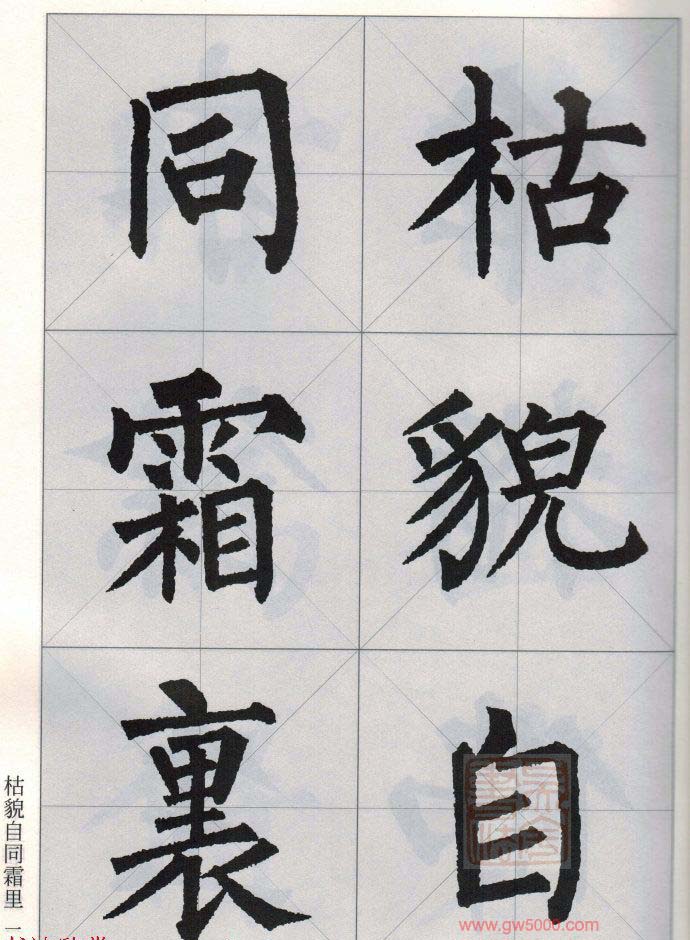 枯貌自
同霜裏
枯貌自同霜里 一
www.gw5000.com